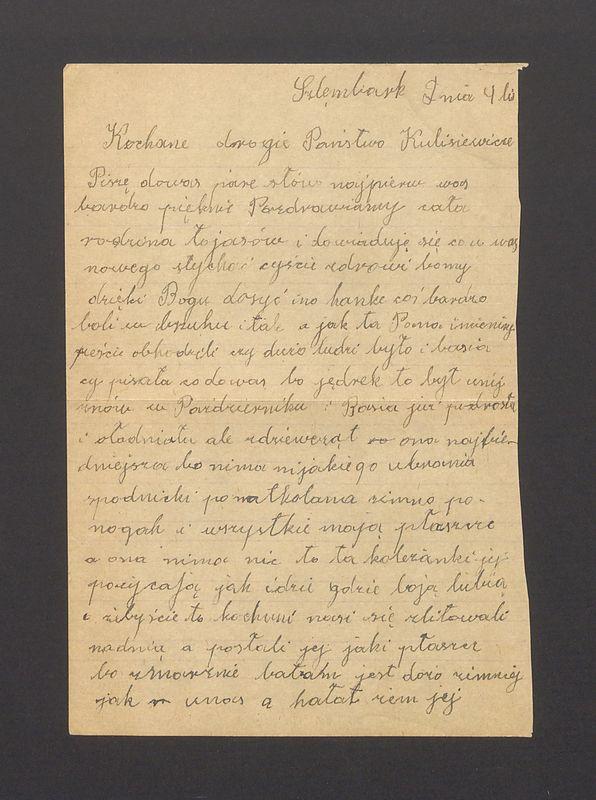 Szlembark Dnia 4 li
Kochane drogie Państwo Kulisiewicze
Piszę dowas pare słów najpierw was
bardzo pięknie Pozdrawiamy cała
rodzina łojasów i dowiaduję się co u was
nowego słychać cyście zdrowi bomy
dzięki Bogu dosyć ino hanke coś bardzo
boli w brzuhu i tak a jak ta Pana imieniny
żeście obhodzili czy dużo ludzi było i basia
cy pisała co dowas bo jędrek to był unij
znów w Październiku i Basia już podrosła
i sładniała ale zdziewcząt ona najbie-
dniejsza bo nima nijakiego ubrania
spodnicki ponatkolana zimno po-
nogah i wszystkie mają płaszcze
a ona nima nic to ta koleżanki jej
pożycają jak idzie gdzie boją lubią
i żibyście to kochani nasi się zlitowali
nadnią a posłali jej jaki płaszcz
bo zmarznie batam jest dożo zimniej
jak unas a hałat ziem jej